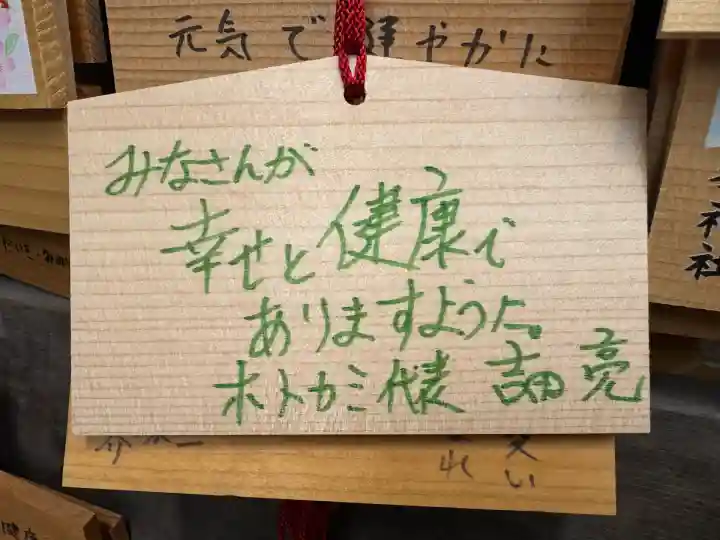 元気で健やかに
みなさんが
幸せと健康で
ありますように。
ホトカミ代表 吉田 亮
神社